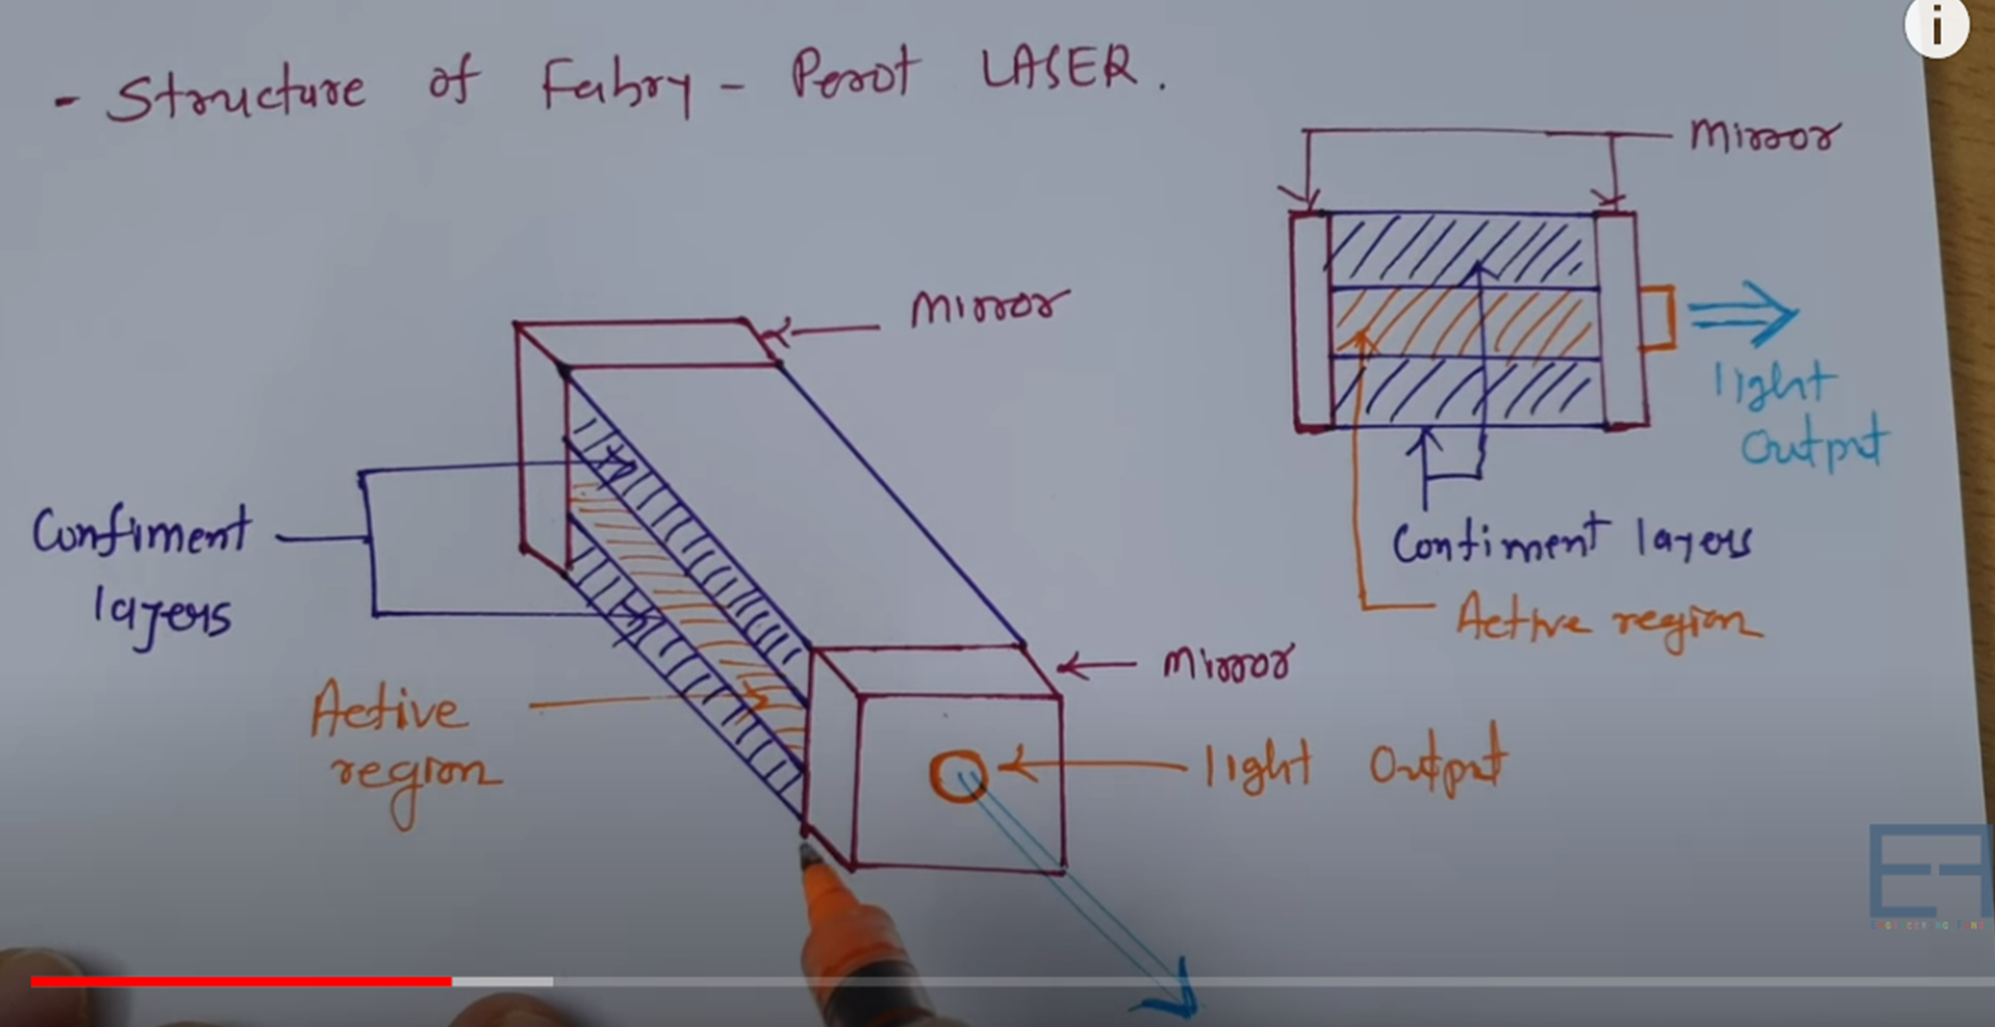 - Structure of Fabry - Perot LASER.
Mirror
Mirror
light
Output
Confiment
layers
Confiment layers
Active region
Mirror
Active
region
light Output
i
EF